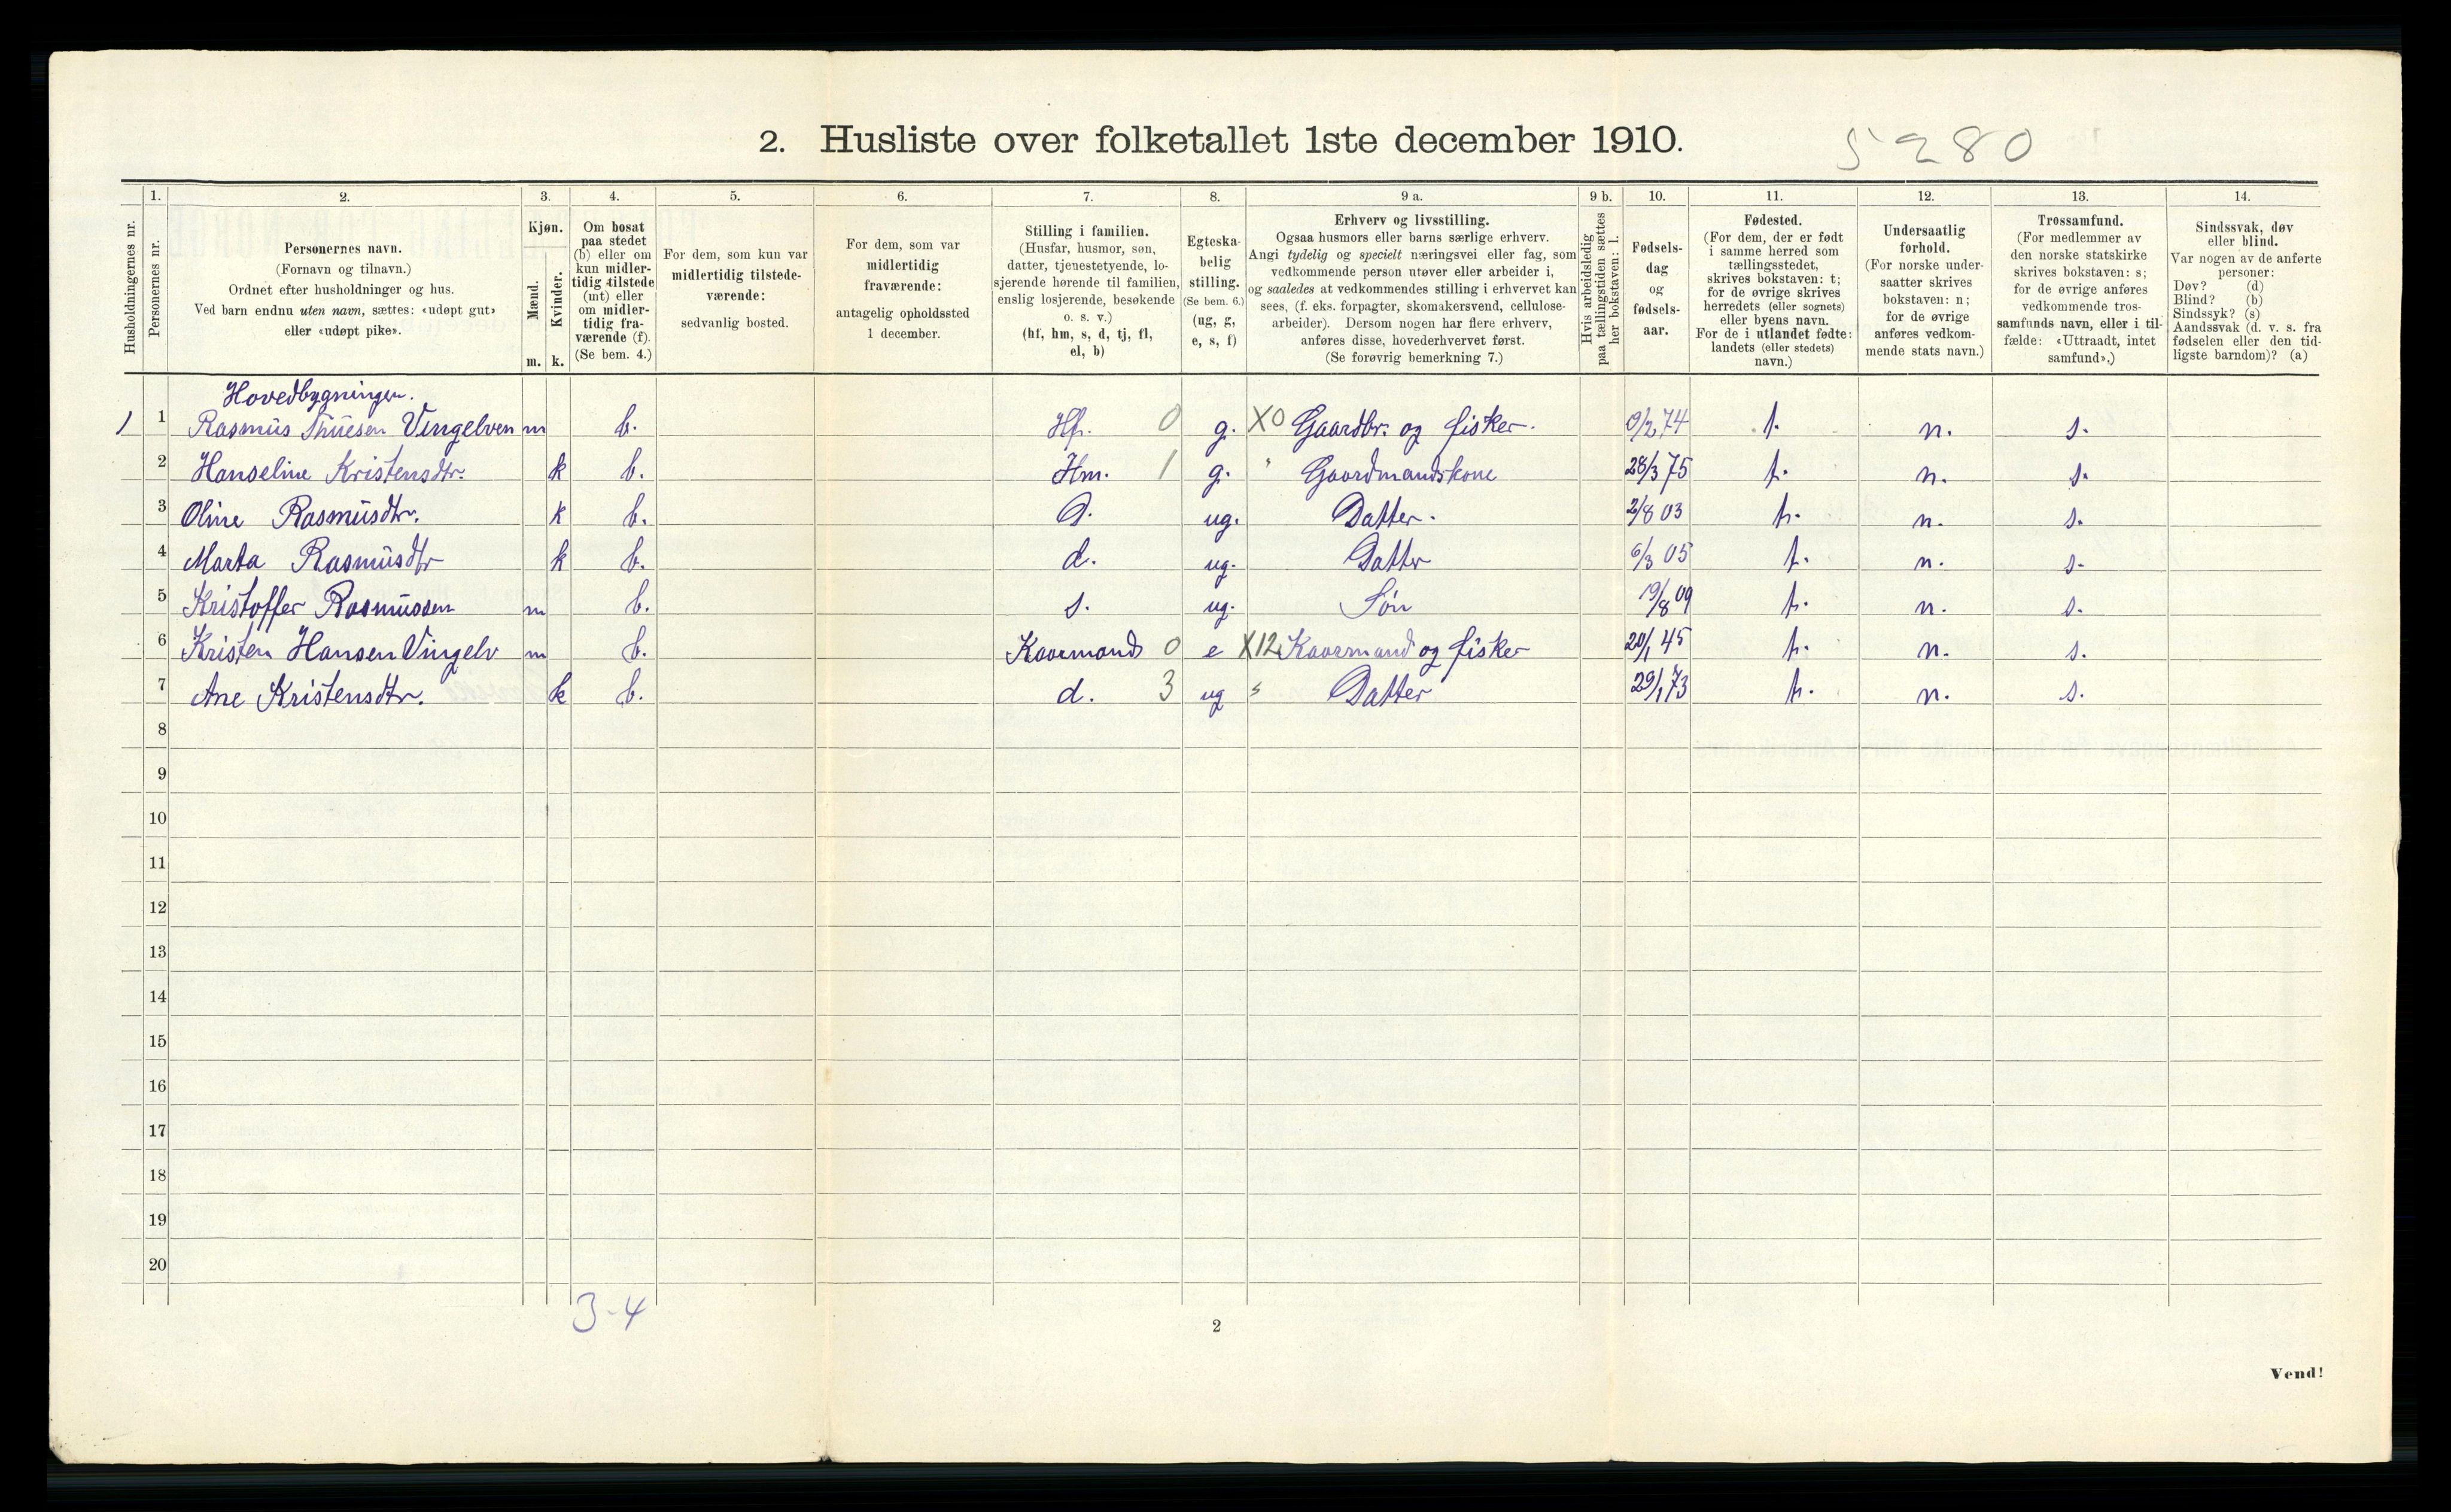 2. Husliste over folketallet 1ste december 1910.
5280
Husholdningernes nr.
1.
Personernes nr.
2.
Personernes navn.
(Fornavn og tilnavn.)
Ordnet efter husholdninger og hus.
Ved barn endnu uten navn, sættes: «udøpt gut»
eller «udøpt pike».
3.
Kjøn.
Mænd.
m.
Kvinder.
k.
4.
Om bosat
paa stedet
(b) eller om
kun midler-
tidig tilstede
(mt) eller
om midler-
tidig fra-
værende (f).
(Se bem. 4.)
5.
For dem, som kun var
midlertidig tilstede-
værende:
sedvanlig bosted.
6.
For dem, som var
midlertidig
fraværende:
antagelig opholdssted
1 december.
7.
Stilling i familien.
(Husfar, husmor, søn,
datter, tjenestetyende, lo-
sjerende hørende til familien,
enslig losjerende, besøkende
o. s. v.)
(hf, hm, s, d, tj, fl,
el, b)
8.
Egteska-
belig
stilling.
(Se bem. 6.)
(ug, g,
e, s, f)
9 a.
Erhverv og livsstilling.
Ogsaa husmors eller barns særlige erhverv.
Angi tydelig og specielt næringsvei eller fag, som
vedkommende person utøver eller arbeider i,
og saaledes at vedkommendes stilling i erhvervet kan
sees, (f. eks. forpagter, skomakersvend, cellulose-
arbeider). Dersom nogen har flere erhverv,
anføres disse, hovederhvervet først.
(Se forøvrig bemerkning 7.)
9 b.
Hvis arbeidsledig
paa tællingstiden sættes
her bokstaven: l.
10.
Fødsels-
dag
og
fødsels-
aar.
11.
Fødested.
(For dem, der er født
i samme herred som
tællingsstedet,
skrives bokstaven: t;
for de øvrige skrives
herredets (eller sognets)
eller byens navn.
For de i utlandet fødte:
landets (eller stedets)
navn.)
12.
Undersaatlig
forhold.
(For norske under-
saatter skrives
bokstaven: n;
for de øvrige
anføres vedkom-
mende stats navn.)
13.
Trossamfund.
(For medlemmer av
den norske statskirke
skrives bokstaven: s;
for de øvrige anføres
vedkommende tros-
samfunds navn, eller i til-
fælde: «Uttraadt, intet
samfund».)
14.
Sindssvak, døv
eller blind.
Var nogen av de anførte
personer:
Døv? (d)
Blind? (b)
Sindssyk? (s)
Aandssvak (d. v. s. fra
fødselen eller den tid-
ligste barndom)? (a)
Hovedbygningen.
1 1 Rasmus Thuesen Vingelven m b. Hf. 0 g. X0 Gaardbr. og fisker. /2 74 t. n. s.
2 Hanseline Kristensdtr. k b. Hm. 1 g. " Gaardmandskone 28/3 75 t. n. s.
3 Oline Rasmusdtr. k b. D. ug. Datter. 2/8 03 t. n. s.
4 Marta Rasmusdtr k b. d. ug. Datter 6/3 05 t. n. s.
5 Kristoffer Rasmussen m b. s. ug. Søn 19/8 09 t. n. s.
6 Kristen Hansen Vingelv m b. Kaarmand 0 e X12 Kaarmand og fisker 20/1 45 t. n. s.
7 Ane Kristensdtr. k b. d. 3 ug " Datter 29/1 73 t. n. s.
8
9
10
11
12
13
14
15
16
17
18
19
20
3-4
2
Vend!